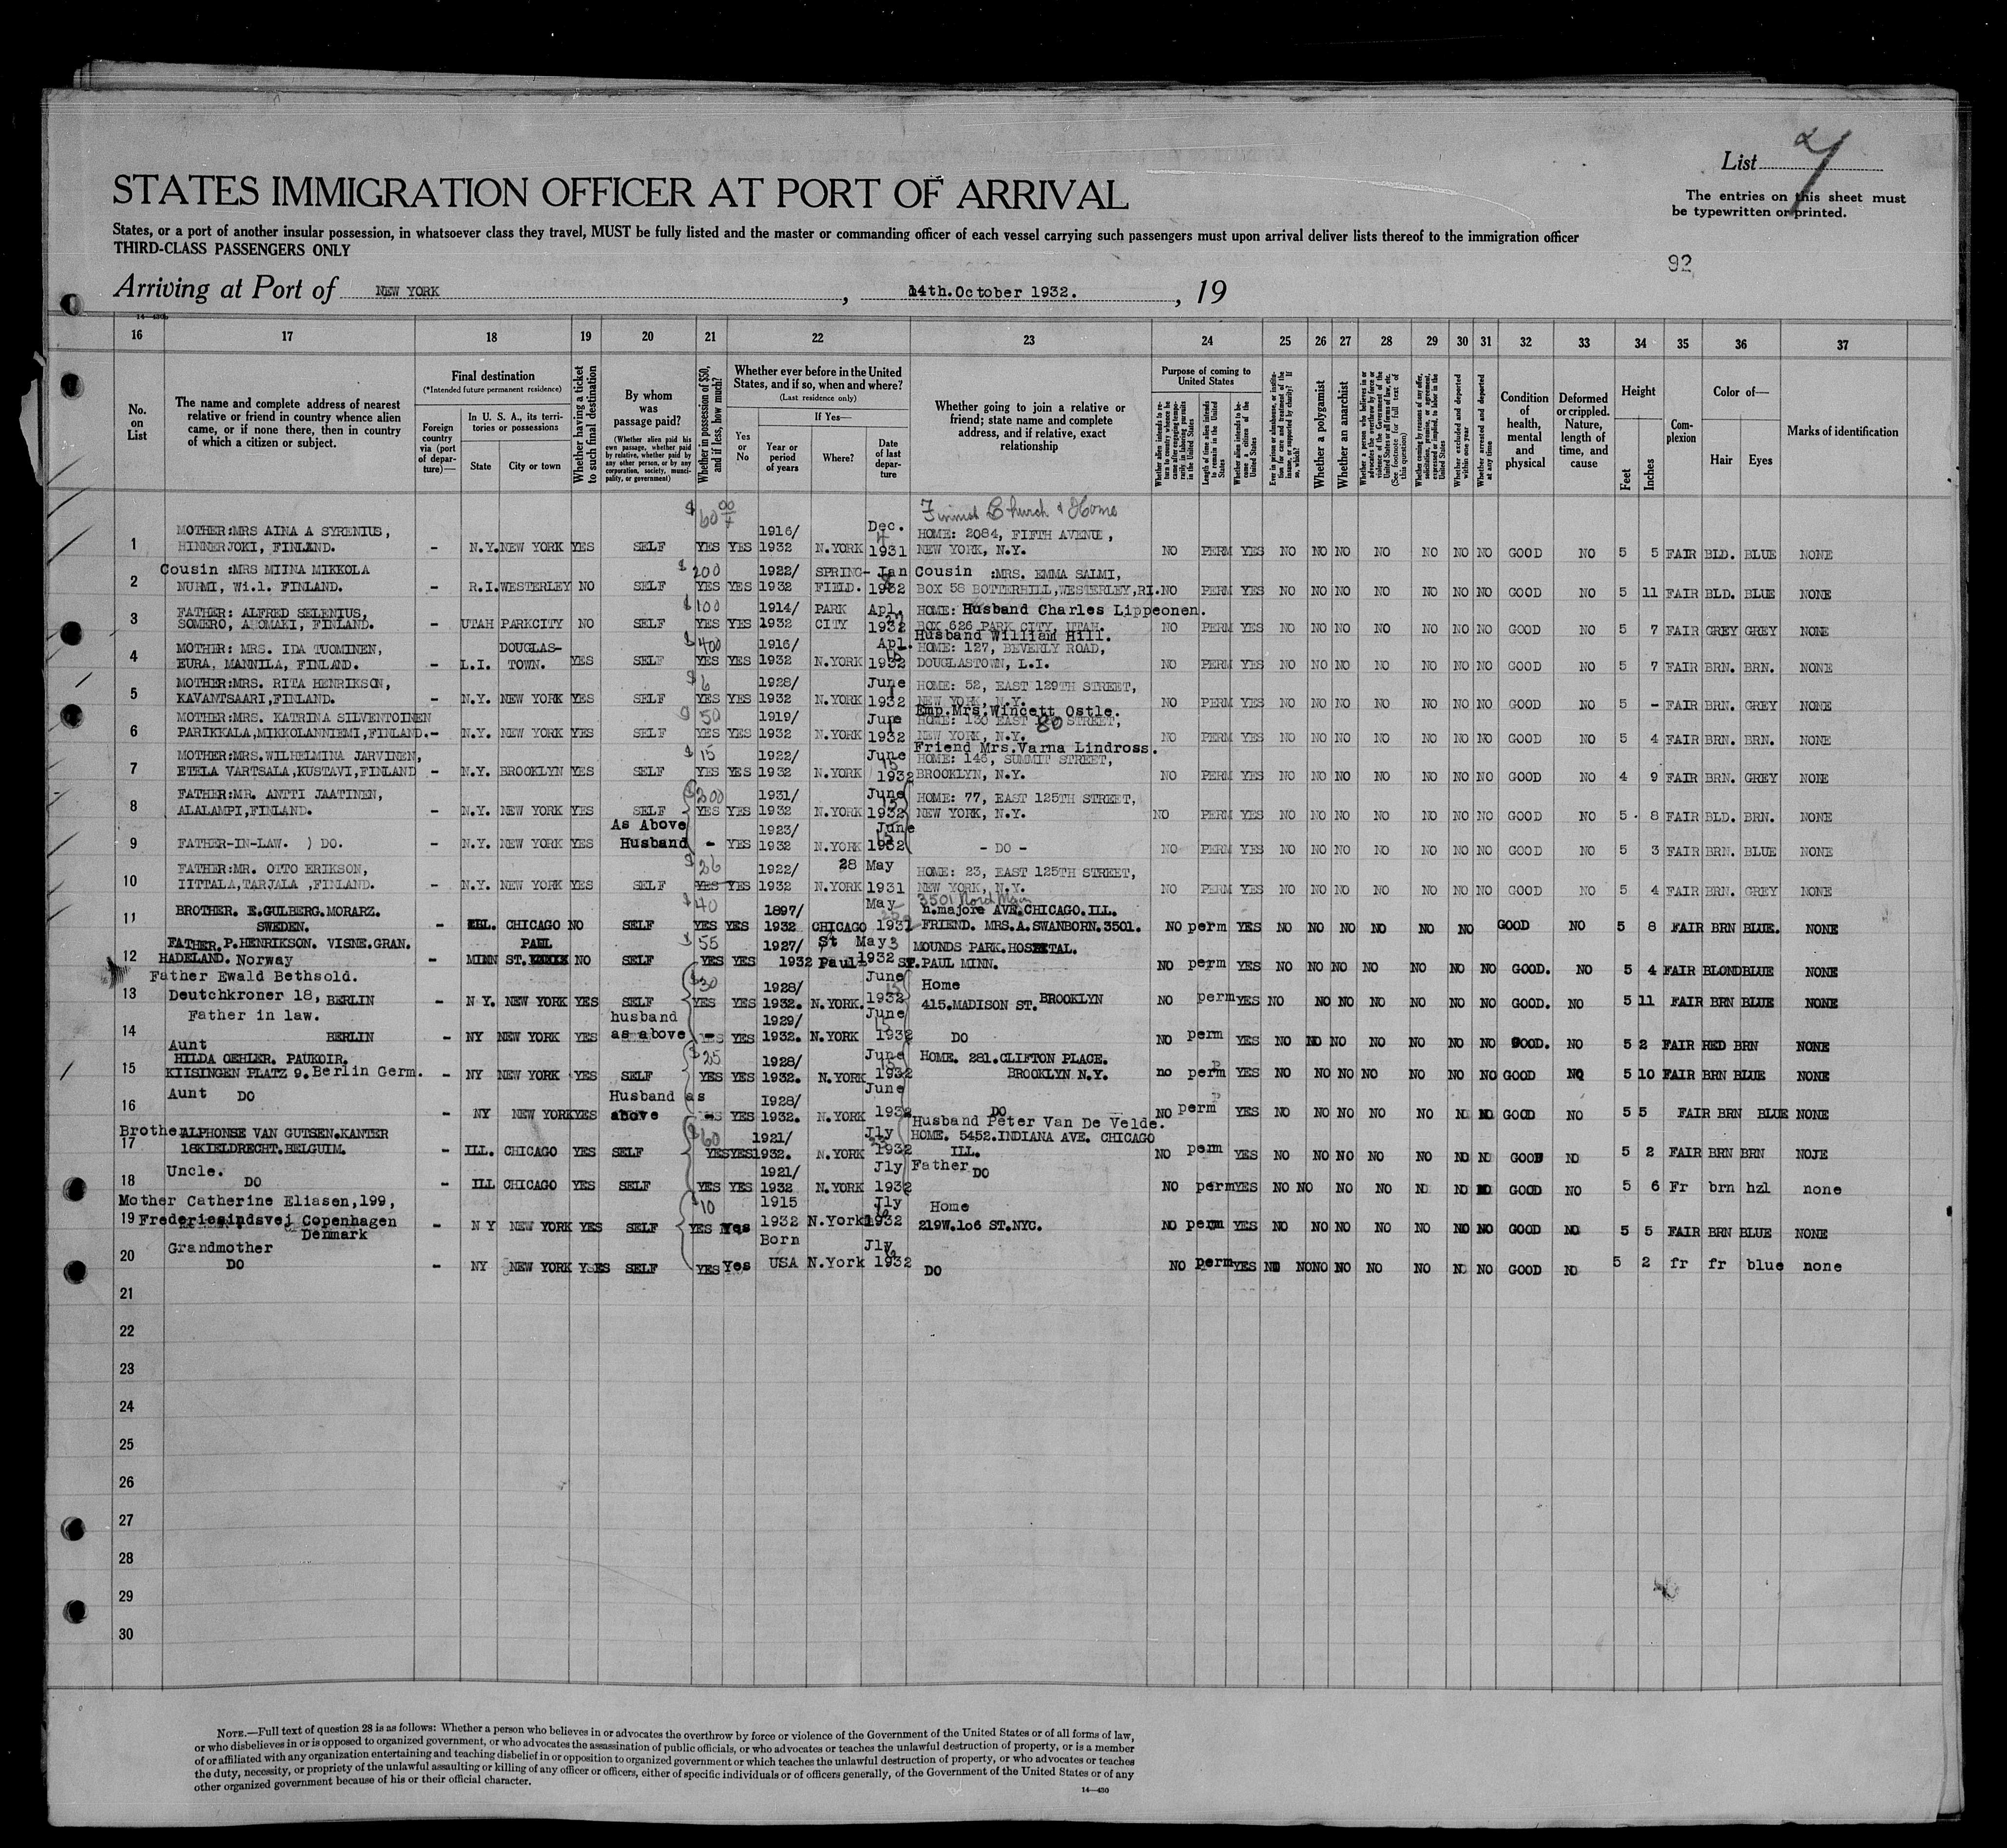 List 7
STATES IMMIGRATION OFFICER AT PORT OF ARRIVAL
The entries on this sheet must
be typewritten or printed.
States, or a port of another insular possession, in whatsoever class they travel, MUST be fully listed and the master or commanding officer of each vessel carrying such passengers must upon arrival deliver lists thereof to the immigration officer
THIRD-CLASS PASSENGERS ONLY
92
Arriving at Port of NEW YORK, 14th.October 1932., 19
14—430
16 17 18 19 20 21 22 23 24 25 26 27 28 29 30 31 32 33 34 35 36 37
No. on List
The name and complete address of nearest relative or friend in country whence alien came, or if none there, then in country of which a citizen or subject.
Final destination
(*Intended future permanent residence)
Foreign country via (port of departure)—
In U. S. A., its territories or possessions
State City or town
Whether having a ticket to such final destination
By whom was passage paid?
(Whether alien paid his own passage, whether paid by relative, whether paid by any other person, or by any corporation, society, municipality, or government)
Whether in possession of $50, and if less, how much?
Whether ever before in the United States, and if so, when and where?
(Last residence only)
Yes or No
If Yes—
Year or period of years
Where?
Date of last departure
Whether going to join a relative or friend; state name and complete address, and if relative, exact relationship
Purpose of coming to United States
Length of time alien intends to remain in the United States
Whether alien intends to become a citizen of the United States
Whether a polygamist
Whether an anarchist
(See footnote for full text of this question)
Whether excluded and deported within one year
Whether arrested and deported at any time
Condition of health, mental and physical
Deformed or crippled. Nature, length of time, and cause
Height
Feet Inches
Complexion
Color of—
Hair Eyes
Marks of identification
$ 60 00 Dec. Finnish Church & Home
MOTHER:MRS AINA A SYRENIUS, 1916/ HOME: 2084, FIFTH AVENUE,
1 HINNERJOKI, FINLAND. - N.Y. NEW YORK YES SELF YES YES 1932 N.YORK 1931 NEW YORK, N.Y. NO PERM YES NO NO NO NO NO NO NO GOOD NO 5 5 FAIR BLD. BLUE NONE
Cousin :MRS MIINA MIKKOLA $ 200 1922/ SPRING- Jan Cousin :MRS. EMMA SALMI,
2 NURMI, Wi.l. FINLAND. - R.I. WESTERLEY NO SELF YES YES 1932 FIELD. 1932 BOX 58 BOTTERHILL,WESTERLEY,RI. NO PERM YES NO NO NO NO NO NO NO GOOD NO 5 11 FAIR BLD. BLUE NONE
FATHER: ALFRED SELENIUS, $ 100 1914/ PARK Apl. HOME: Husband Charles Lippeonen.
3 SOMERO, AHOMAKI, FINLAND. - UTAH PARKCITY NO SELF YES YES 1932 CITY 1932 BOX 626 PARK CITY, UTAH. NO PERM YES NO NO NO NO NO NO NO GOOD NO 5 7 FAIR GREY GREY NONE
Husband William Hill.
MOTHER: MRS. IDA TUOMINEN, DOUGLAS- $ 400 1916/ Apl. HOME: 127, BEVERLY ROAD,
4 EURA, MANNILA, FINLAND. - L.I. TOWN. YES SELF YES YES 1932 N.YORK 1932 DOUGLASTOWN, L.I. NO PERM YES NO NO NO NO NO NO NO GOOD NO 5 7 FAIR BRN. BRN. NONE
MOTHER:MRS. RITA HENRIKSON, $ 6 1928/ June HOME: 52, EAST 129TH STREET,
5 KAVANTSAARI,FINLAND. - N.Y. NEW YORK YES SELF YES YES 1932 N.YORK 1932 NEW YORK, N.Y. NO PERM YES NO NO NO NO NO NO NO GOOD NO 5 - FAIR BRN. GREY NONE
Emp.Mrs.Wincett Ostle.
MOTHER:MRS. KATRINA SILVENTOINEN $ 50 1919/ June HOME: 130 EAST 80 STREET,
6 PARIKKALA,MIKKOLANNIEMI,FINLAND. - N.Y. NEW YORK YES SELF YES YES 1932 N.YORK 1932 NEW YORK, N.Y. NO PERM YES NO NO NO NO NO NO NO GOOD NO 5 4 FAIR BRN. BRN. NONE
Friend Mrs.Varna Lindross.
MOTHER:MRS.WILHELMINA JARVINEN, $ 15 1922/ June 15 HOME: 146, SUMMIT STREET,
7 ETELA VARTSALA,KUSTAVI,FINLAND - N.Y. BROOKLYN YES SELF YES YES 1932 N.YORK 1932 BROOKLYN, N.Y. NO PERM YES NO NO NO NO NO NO NO GOOD NO 4 9 FAIR BRN. GREY NONE
FATHER:MR. ANTTI JAATINEN, $ 200 1931/ June 15 HOME: 77, EAST 125TH STREET,
8 ALALAMPI,FINLAND. - N.Y. NEW YORK YES SELF YES YES 1932 N.YORK 1932 NEW YORK, N.Y. NO PERM YES NO NO NO NO NO NO NO GOOD NO 5 8 FAIR BLD. BRN. NONE
As Above 1923/ June
9 FATHER-IN-LAW. ) DO. - N.Y. NEW YORK YES Husband - YES 1932 N.YORK 1932 - DO - NO PERM YES NO NO NO NO NO NO NO GOOD NO 5 3 FAIR BRN. BLUE NONE
FATHER:MR. OTTO ERIKSON, $ 26 1922/ 28 May HOME: 23, EAST 125TH STREET,
10 IITTALA,TARJALA ,FINLAND. - N.Y. NEW YORK YES SELF YES YES 1932 N.YORK 1931 NEW YORK, N.Y. NO PERM YES NO NO NO NO NO NO NO GOOD NO 5 4 FAIR BRN. GREY NONE
3501 Nord Main
BROTHER. E.GULBERG.MORARZ. $ 40 1897/ May n.majore AVE.CHICAGO.ILL.
11 SWEDEN. - ILL. CHICAGO NO SELF YES YES 1932 CHICAGO 1931 FRIEND. MRS.A.SWANBORN.3501. NO perm YES NO NO NO NO NO NO GOOD NO 5 8 FAIR BRN BLUE. NONE
FATHER.P.HENRIKSON. VISNE.GRAN. PAUL $ 55 1927/ St May 3 MOUNDS PARK.HOSPITAL.
12 HADELAND. Norway - MINN ST. NO SELF YES YES 1932 Paul 1932 ST.PAUL MINN. NO perm YES NO NO NO NO NO NO NO GOOD. NO 5 4 FAIR BLOND BLUE NONE
Father Ewald Bethsold. $ 30 1928/ June Home
13 Deutchkroner 18, BERLIN - N Y. NEW YORK YES SELF YES YES 1932. N.YORK. 1932 415.MADISON ST. BROOKLYN NO perm YES NO NO NO NO NO NO NO GOOD. NO 5 11 FAIR BRN BLUE NONE
Father in law. husband 1929/ June 15
14 BERLIN - NY NEW YORK YES as above - YES 1932. N.YORK 1932 DO NO perm YES NO NO NO NO NO NO NO GOOD. NO 5 2 FAIR RED BRN NONE
Aunt
HILDA OEHLER. PAUKOIR. $ 25 1928/ June 15 HOME. 281.CLIFTON PLACE.
15 KIISINGEN PLATZ 9. Berlin Germ. - NY NEW YORK YES SELF YES YES 1932. N.YORK 1932 BROOKLYN N.Y. no perm YES NO NO NO NO NO NO NO GOOD NO 5 10 FAIR BRN BLUE NONE
Aunt DO Husband as 1928/ June
16 - NY NEW YORK YES above - YES 1932. N.YORK 1932 DO NO perm YES NO NO NO NO NO NO NO GOOD NO 5 5 FAIR BRN BLUE NONE
Husband Peter Van De Velde.
Brother ALPHONSE VAN GUTSEN.KANTER $ 60 1921/ Jly HOME. 5452.INDIANA AVE. CHICAGO
17 18KIELDRECHT.BELGUIM. - ILL. CHICAGO YES SELF YES YES 1932. N.YORK 1932 ILL. NO perm YES NO NO NO NO NO NO NO GOOD NO 5 2 FAIR BRN BRN NOJE
Uncle. 1921/ Jly Father
18 DO - ILL CHICAGO YES SELF YES YES 1932 N.YORK 1932 DO NO perm YES NO NO NO NO NO NO NO GOOD NO 5 6 Fr brn hzl none
Mother Catherine Eliasen,199, $ 10 1915 Jly Home
19 Fredericsindsvej Copenhagen - N Y NEW YORK YES SELF YES Yes 1932 N.York 1932 219W.106 ST.NYC. NO perm YES NO NO NO NO NO NO NO GOOD NO 5 5 FAIR BRN BLUE NONE
Denmark
Grandmother Born Jly
20 DO - NY NEW YORK YES SELF YES Yes USA N.York 1932 DO NO perm YES NO NO NO NO NO NO NO NO GOOD NO 5 2 fr fr blue none
21
22
23
24
25
26
27
28
29
30
NOTE.—Full text of question 28 is as follows: Whether a person who believes in or advocates the overthrow by force or violence of the Government of the United States or of all forms of law,
or who disbelieves in or is opposed to organized government, or who advocates the assassination of public officials, or who advocates or teaches the unlawful destruction of property, or is a member
of or affiliated with any organization entertaining and teaching disbelief in or opposition to organized government or which teaches the unlawful destruction of property, or who advocates or teaches
the duty, necessity, or propriety of the unlawful assaulting or killing of any officer or officers, either of specific individuals or of officers generally, of the Government of the United States or of any
other organized government because of his or their official character.
14—430